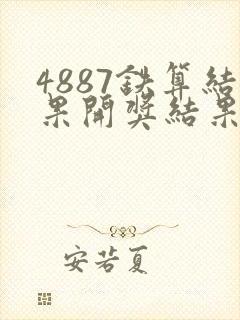 4887鉄算結
果開獎結果
安若夏